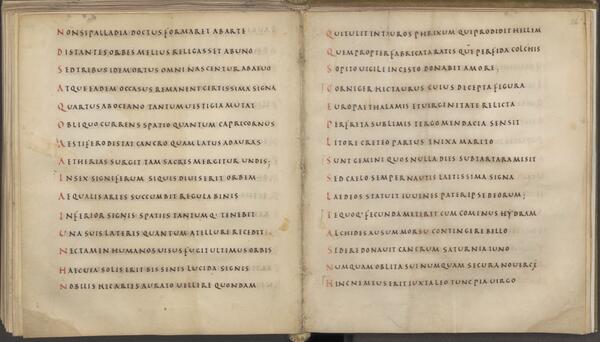 NONSIPALLADIA DOCTUS FORMARET ABARTE
DISTANTES ORBES MELIUS RELIGASSET ABUNO
SEDTRIBUS IDEMORTUS OMNI NASCENTUR ABAEUO
ATQUE EADEM OCCASUS REMANENT CERTISSIMA SIGNA
QUARTUS ABOCEANO TANTUM UESTIGIA MUTAT
OBLIQUO CURRENS SPATIO QUANTUM CAPRICORNUS
AESTIFERO DISTAT CANCRO QUAM LATUS ADAURAS
AETHERIAS SURGIT TAM SACRIS MERGITUR UNDIS;
INSEX SIGNIFERUM SIQUIS DIUISERIT ORBEM
AEQUALIS ARIES SUCCUMBIT REGULA BINIS
INFERIOR SIGNIS SPATIIS TANTUMQ: TENEBIT
UNA SUIS LATERIS QUANTUM ATELLURE RECEDIT
NECTAMEN HUMANOS UISUS FUGIT ULTIMUS ORBIS
HAECUIA SOLIS ERIT BIS SENIS LUCIDA SIGNIS
NOBILIS HIC ARIES AURATO UELLERE QUONDAM
QUITULIT INTAUROS PHRIXUM QUIPRODIDIT HELLEM
QUEM PROPTER FABRICATA RATIS QUE PERFIDA COLCHIS
SOPITO UIGILE INCESTO DONABIT AMORE;
CORNIGER HICTAURUS CUIUS DECEPTA FIGURA
EUROPAE THALAMIS ETUIRGINITATE RELICTA
PERFRETA SUBLIMIS TERGO MENDACIA SENSIT
LITORE CRETEO PARTUS ENIXA MARITO
SUNT GEMINI QUOS NULLA DIES SUBTARTARA MISIT
SED CAELO SEMPER NAUTIS LAETISSIMA SIGNA
LAEDEOS STATUIT IUUENES PATER IPSE DEORUM;
TEQUOQ; FECUNDA METERET CUM COMINUS HYDRAM
ALCHIDES AUSUM MORSU CONTINGERE BILLO
SIDERE DONAUIT CANCRUM SATURNIA IUNO
NUMQUAM OBLITA SUI NUMQUAM SECURA NOUERCE
HINC NEMEUS ERIT IUXTA LEO TUNC PIA UIRGO